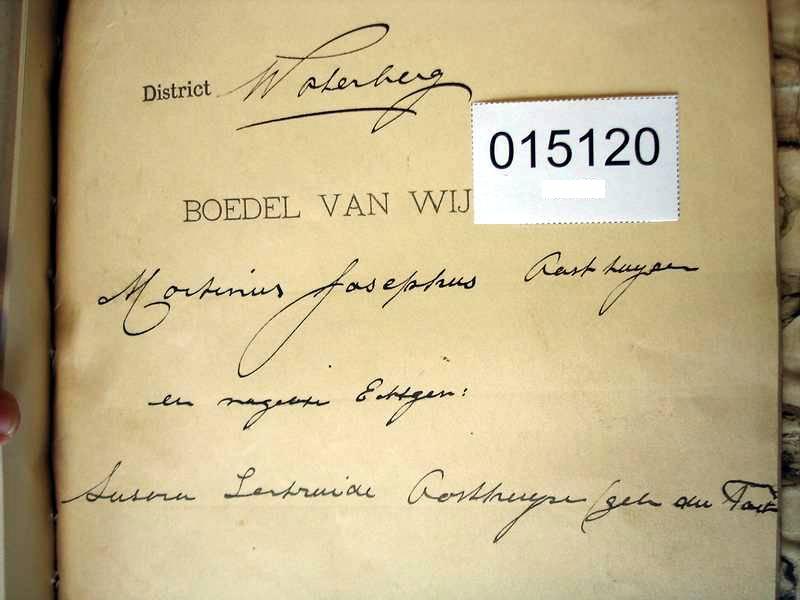 District Waterberg
015120
BOEDEL VAN WIJ
Martinus Josephus Oosthuysen
en nagelate Echtgen:
Susara Gertruida Oosthuysen (geb du Toit